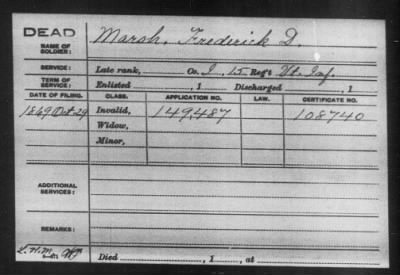 DEAD
NAME OF SOLDIER: Marsh, Frederick D.
SERVICE: Late rank, Co. I, 15 Reg't Vt. Inf.
TERM OF SERVICE: Enlisted , 1 Discharged , 1
DATE OF FILING. CLASS. APPLICATION NO. LAW. CERTIFICATE NO.
1869 Oct. 29 Invalid, 149,487 108740
Widow,
Minor,
ADDITIONAL SERVICES:
REMARKS:
Died , 1 , at